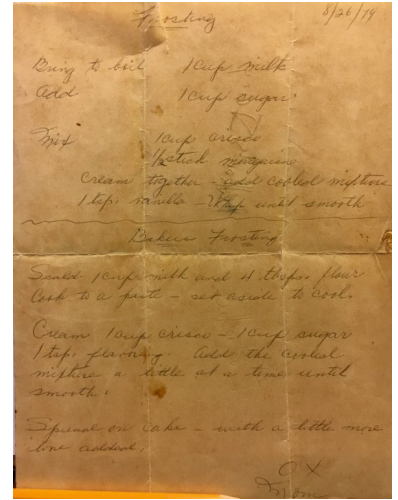 Frosting 8/26/79
Bring to boil 1 cup milk
Add 1 cup sugar
Mix 1 cup crisco
1/2 stick margarine
Cream together - add cooled mixture
1 tsp. vanilla Whip until smooth
Bakers Frosting
Scald 1 cup milk and 4 tbsps. flour
Cook to a paste - set aside to cool.
Cream 1 cup crisco - 1 cup sugar
1 tsp. flavoring. Add the cooled
mixture a little at a time until
smooth.
Spread on cake - with a little more
love added.
OX
Mom